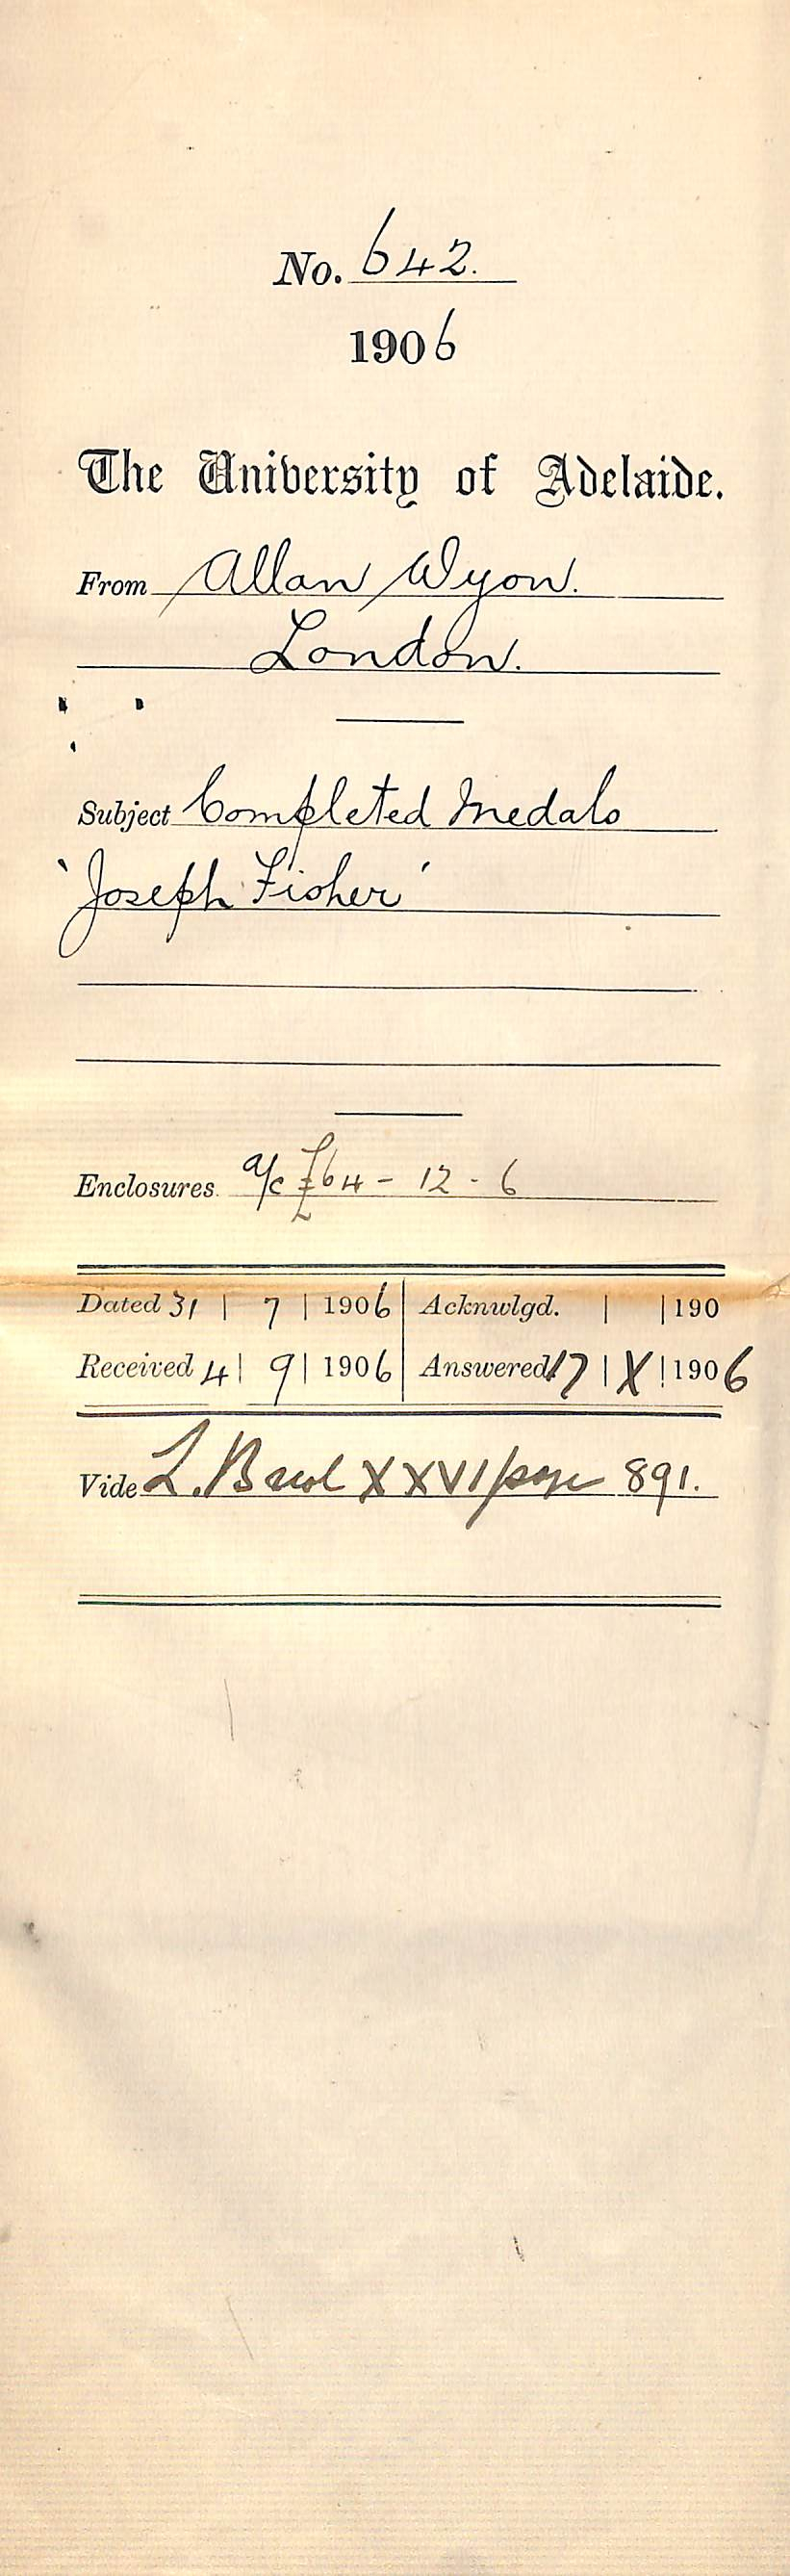 No. 642.
1906
The University of Adelaide.
From Allan Wyon.
London.
Subject Completed Medals
'Joseph Fisher'
Enclosures a/c £64 - 12 - 6
Dated 31 | 7 | 1906 Acknwlgd. | | 190
Received 4 | 9 | 1906 Answered 17 | X | 1906
Vide L. Book XXVI/page 891.